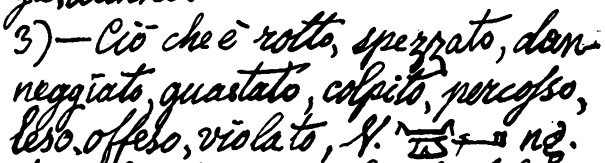 3)—Ciò che è rotto, spezzato, dan-
neggiato, guastato, colpito, percosso,
leso, offeso, violato, V. ng.